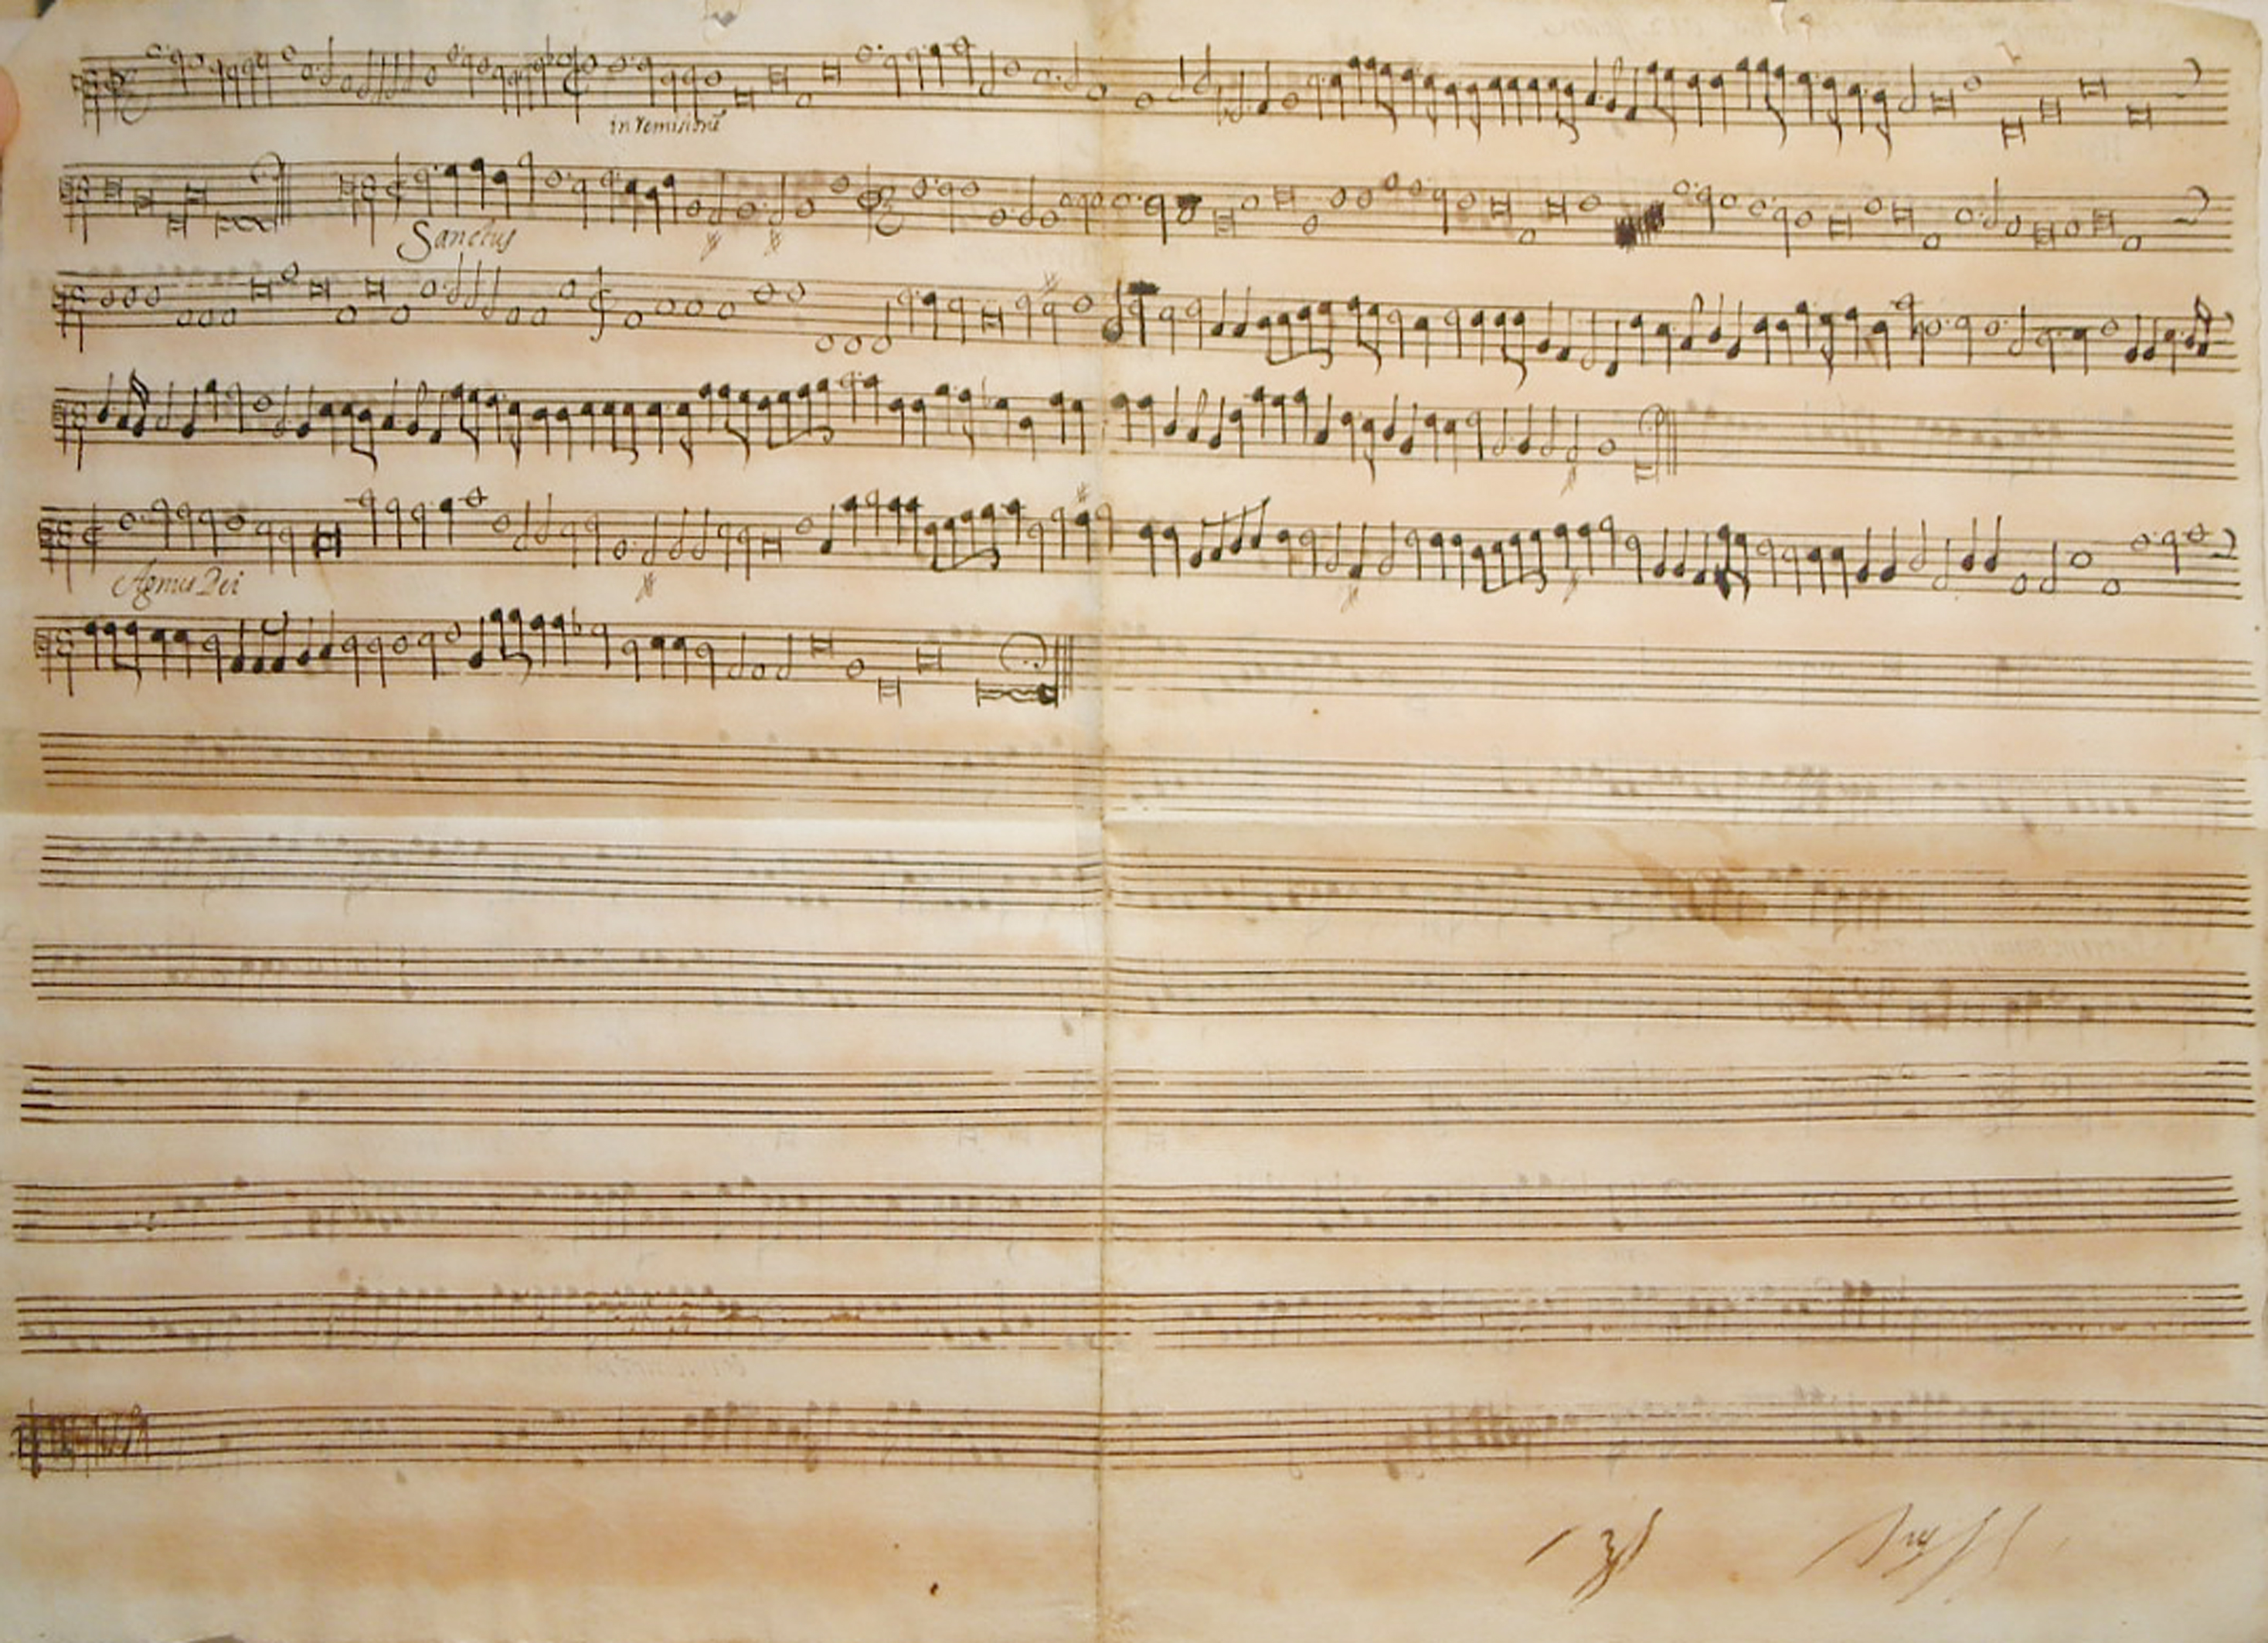 in remisionē
Sanctus
Agnus Dei